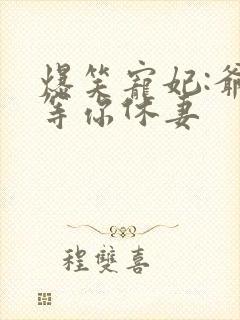 爆笑寵妃:爺
等你休妻
程雙喜